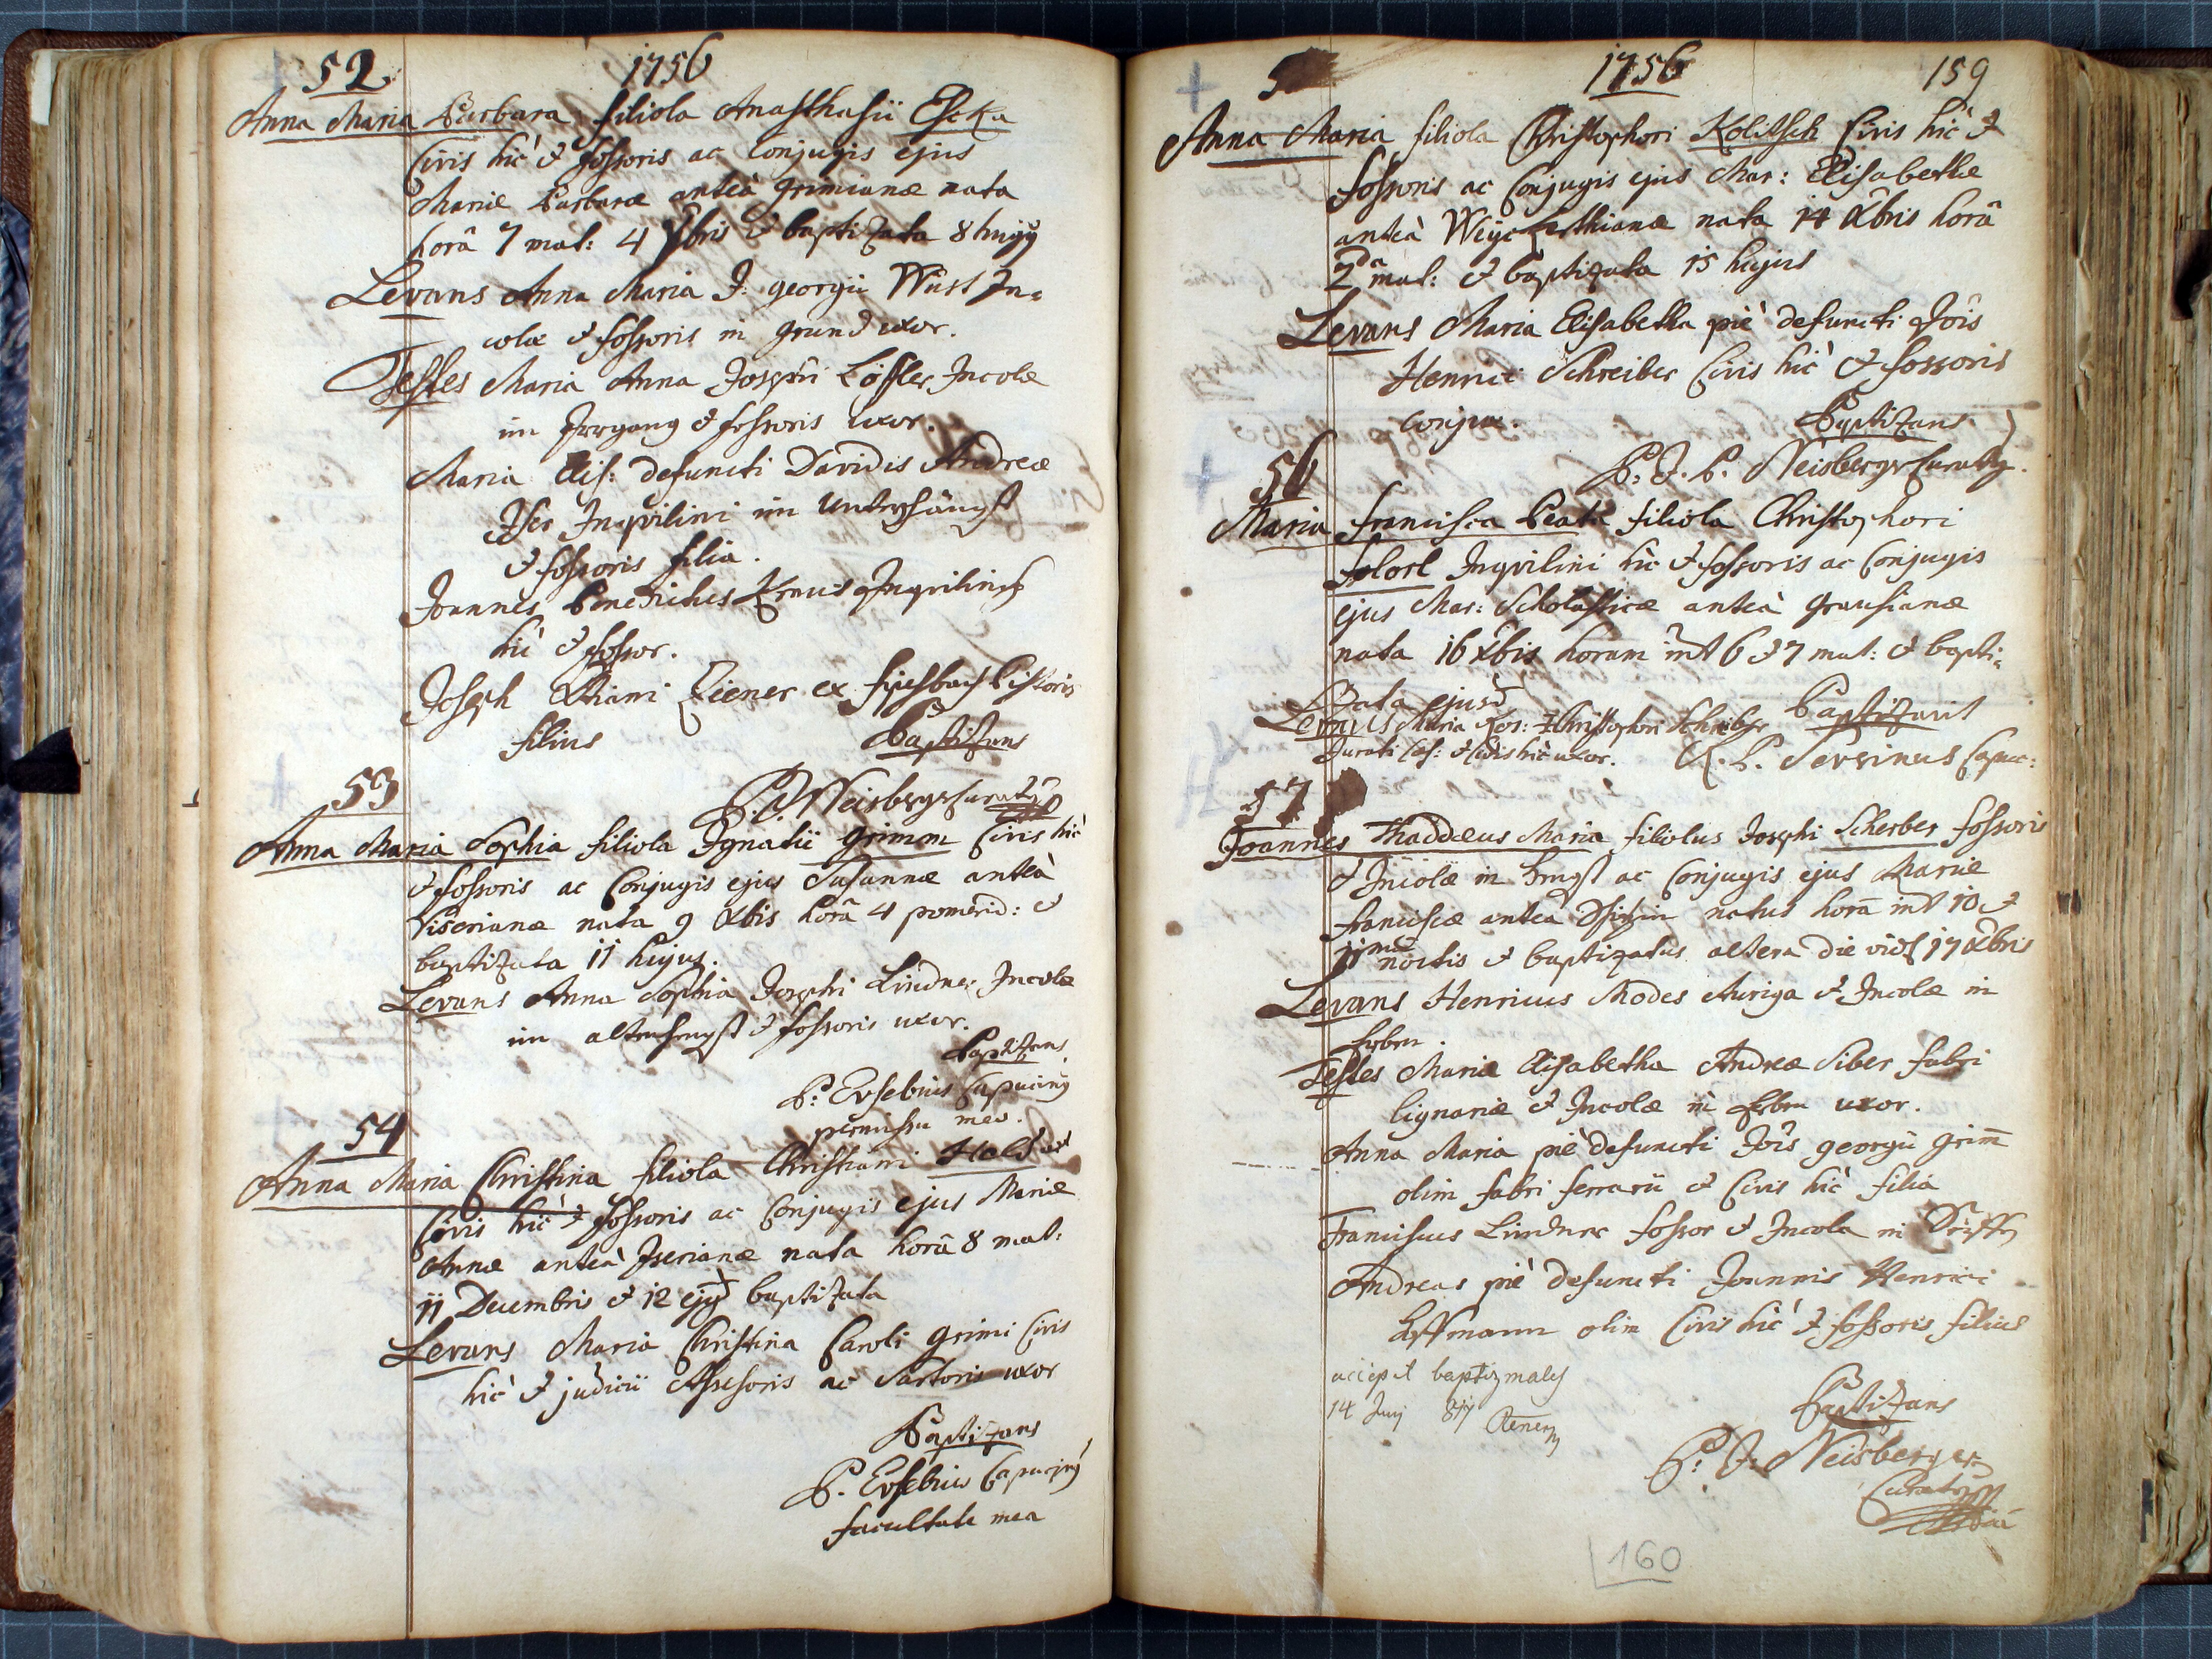 52 1756
Anna Maria Barbara filiola Anasthasii Escka
Civis hic & fossoris ac Conjugis ejus
Mariæ Barbaræ anteà Grimianæ nata
horâ 7 mat: 4 Xbris & baptizata 8 hujus
Levans Anna Maria J: georgii Wüst In=
colæ & fossoris in grund uxor.
Testes Maria Anna Josephi Löffler Incolæ
im Irrgang & fossoris uxor.
Maria Elis: defuncti Davidis Andreæ
Iser Inqvilini im
& fossoris filia.
Joannes Benedictus Kraus Inqvilinus
hic & fossor.
Joseph Ziener ex Pistoris
filius Baptizans
P. J. Neisberger Curatus
53
Anna Maria Sophia filiola Ignatii Grimm Civis hic
& fossoris ac Conjugis ejus Susannæ anteà
nata 9 Xbis horâ 4 pomerid: &
baptizata 11 hujus.
Levans Anna Sophia Josephi Lindner Incolæ
im & fossoris uxor.
Baptizans
P: Eusebius Capucinus
permissu meo.
54
Anna Maria Christina filiola Christiani
Civis hic & fossoris ac Conjugis ejus Mariæ
Annæ anteà Iserianæ nata horâ 8 mat:
11 Decembris & 12 ejusd baptizata
Levans Maria Christina Caroli Grimi Civis
hic & judicii Assessoris ac Sartoris uxor
Baptizans
P. Eusebius Capucinus
facultate mea
5 1756 159
Anna Maria filiola Christophori Kolitsch Civis hic &
fossoris ac Conjugis ejus Mar: Elisabethæ
anteà nata 14 Xbris horâ
2da mat: & baptizata 15 hujus
Levans Maria Elisabetha piè defuncti Jois
Henrici Schreiber Civis hic & fossoris
conjux. Baptizans
P. J. P. Neisberger Curatus.
56
Maria Francisca Beata filiola Christophori
Inqvilini hic & fossoris ac Conjugis
ejus Mar: Scholasticæ anteà Grausianæ
nata 16 Xbis horam int 6 & 7 mat: & bapti=
zata ejusd
Levans Maria Ros: Christophori Schreiber Baptizavit
Jurati Cæs: & Civis hic uxor. R. P. Capuc:
57
Joannes Thaddæus Maria filiolus Josephi Scherber fossoris
& Incolæ in ac Conjugis ejus Mariæ
Franciscæ antea natus horâ int 10 &
11ma noctis & baptizatus altera die vidl 17 Xbris
Levans Henricus Modes Auriga & Incolæ in
Testes Maria Elisabetha Andreæ Siber fabri
lignariæ & Incolæ in uxor.
Anna Maria piè defuncti Jois georgii Grim̄
olim fabri ferrarii & Civis hic filia
Franciscus Lindner fossor & Incola in
Andreas piè defuncti Joannis Henrici
Hoffmann olim Civis hic & fossoris filius
accepit baptizmales
14 Junj
Baptizans
P: J: Neisberger
Curatus
160